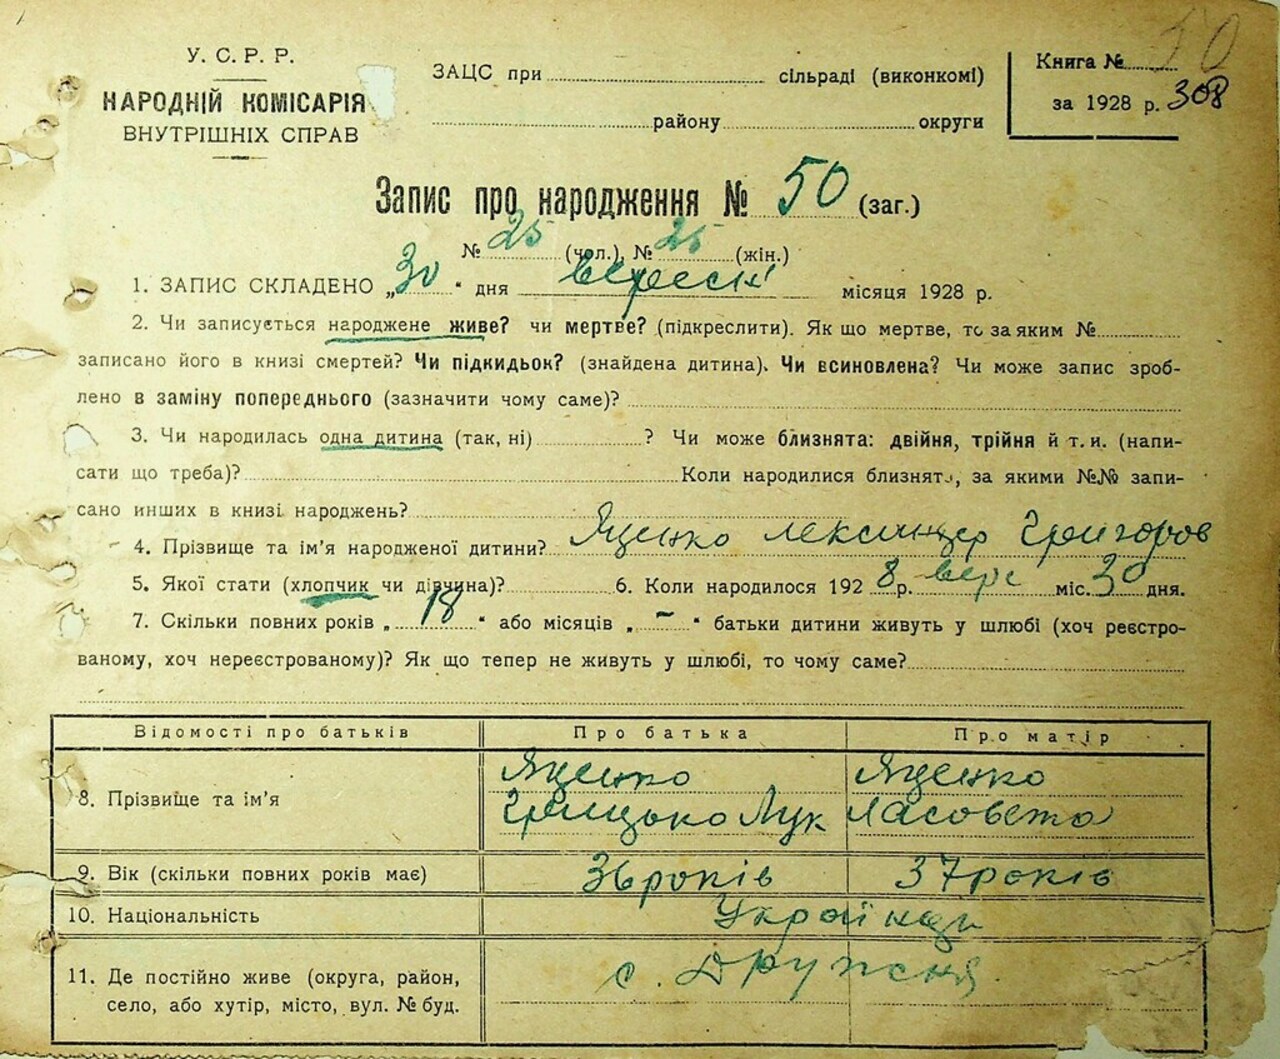 50
У. С. Р. Р.
НАРОДНІЙ КОМІСАРІЯ
ВНУТРІШНІХ СПРАВ
ЗАЦС при сільраді (виконкомі)
району округи
Книга №
за 1928 р. 308
Запис про народження № 50 (заг.)
№ 25 (чол.), № 25 (жін.)
1. ЗАПИС СКЛАДЕНО „30" дня вересн місяця 1928 р.
2. Чи записується народжене живе? чи мертве? (підкреслити). Як що мертве, то за яким №
записано його в книзі смертей? Чи підкидьок? (знайдена дитина). Чи всиновлена? Чи може запис зроб-
лено в заміну попереднього (зазначити чому саме)?
3. Чи народилась одна дитина (так, ні) ? Чи може близнята: двійня, трійня й т. и. (напи-
сати що треба)? Коли народилися близнята, за якими №№ запи-
сано инших в книзі народжень?
4. Прізвище та ім'я народженої дитини? Яценко Лександер Григоров
5. Якої стати (хлопчик чи дівчина)? 6. Коли народилося 1928 р. вере міс. 30 дня.
7. Скільки повних років „18" або місяців „–" батьки дитини живуть у шлюбі (хоч реєстро-
ваному, хоч нереєстрованому)? Як що тепер не живуть у шлюбі, то чому саме?
Відомості про батьків Про батька Про матір
8. Прізвище та ім'я Яценко Грицько Лук Яценко Ласовета
9. Вік (скільки повних років має) 36 років 37 років
10. Національність Українци
11. Де постійно живе (округа, район, с. Дружня
село, або хутір, місто, вул. № буд.